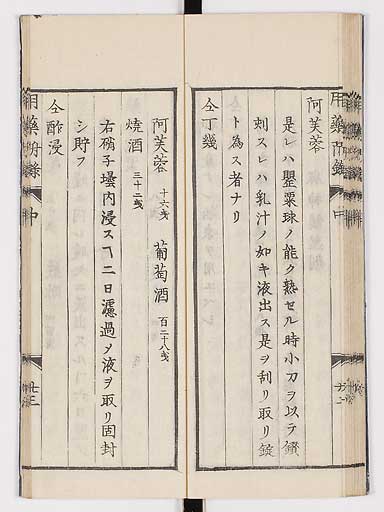 阿芙蓉
是レハ罌粟球ノ能ク熟セル時小刀ヲ以テ鑽
刺スレハ乳汁ノ如キ液出ス是ヲ刮リ取リ錠
ト為ス者ナリ
仝丁幾
阿芙蓉 十六戔 葡萄酒 百二十八戔
燒酒 三十二戔
右硝子壜内浸スヿ二日濾過メ液ヲ取リ固封
シ貯フ
仝酢浸
用藥 中